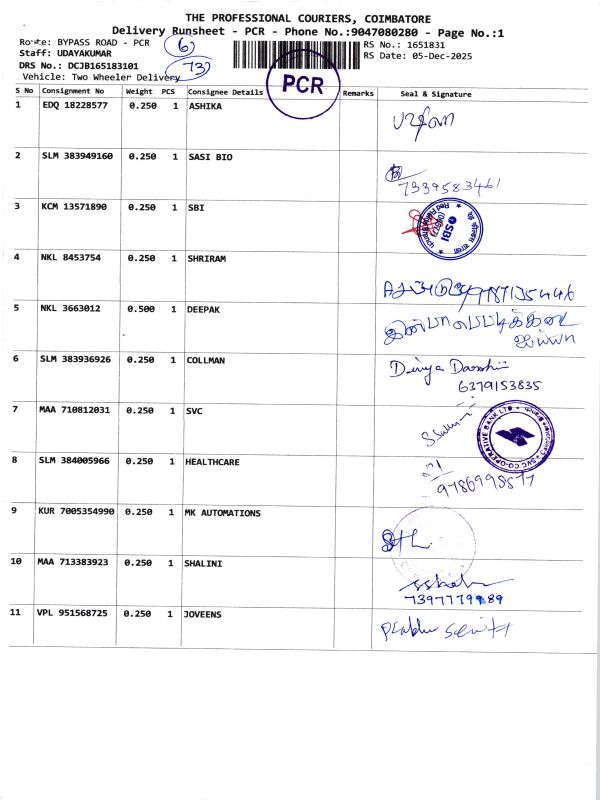 THE PROFESSIONAL COURIERS, COIMBATORE
Delivery Runsheet - PCR - Phone No.:9047080280 - Page No.:1
Route: BYPASS ROAD - PCR
6
RS No.: 1651831
Staff: UDAYAKUMAR
RS Date: 05-Dec-2025
DRS No.: DCJB165183101
73
Vehicle: Two Wheeler Delivery
PCR
S No Consignment No Weight PCS Consignee Details Remarks Seal & Signature
1 EDQ 18228577 0.250 1 ASHIKA
2 SLM 383949160 0.250 1 SASI BIO
7339583461
3 KCM 13571890 0.250 1 SBI
SBI
4 NKL 8453754 0.250 1 SHRIRAM
5 NKL 3663012 0.500 1 DEEPAK
6 SLM 383936926 0.250 1 COLLMAN
Divya Darshini
6379153835
7 MAA 710812031 0.250 1 SVC
SVC CO-OPERATIVE BANK LTD
8 SLM 384005966 0.250 1 HEALTHCARE
9786998877
9 KUR 7005354990 0.250 1 MK AUTOMATIONS
10 MAA 713383923 0.250 1 SHALINI
7397779989
11 VPL 951568725 0.250 1 JOVEENS